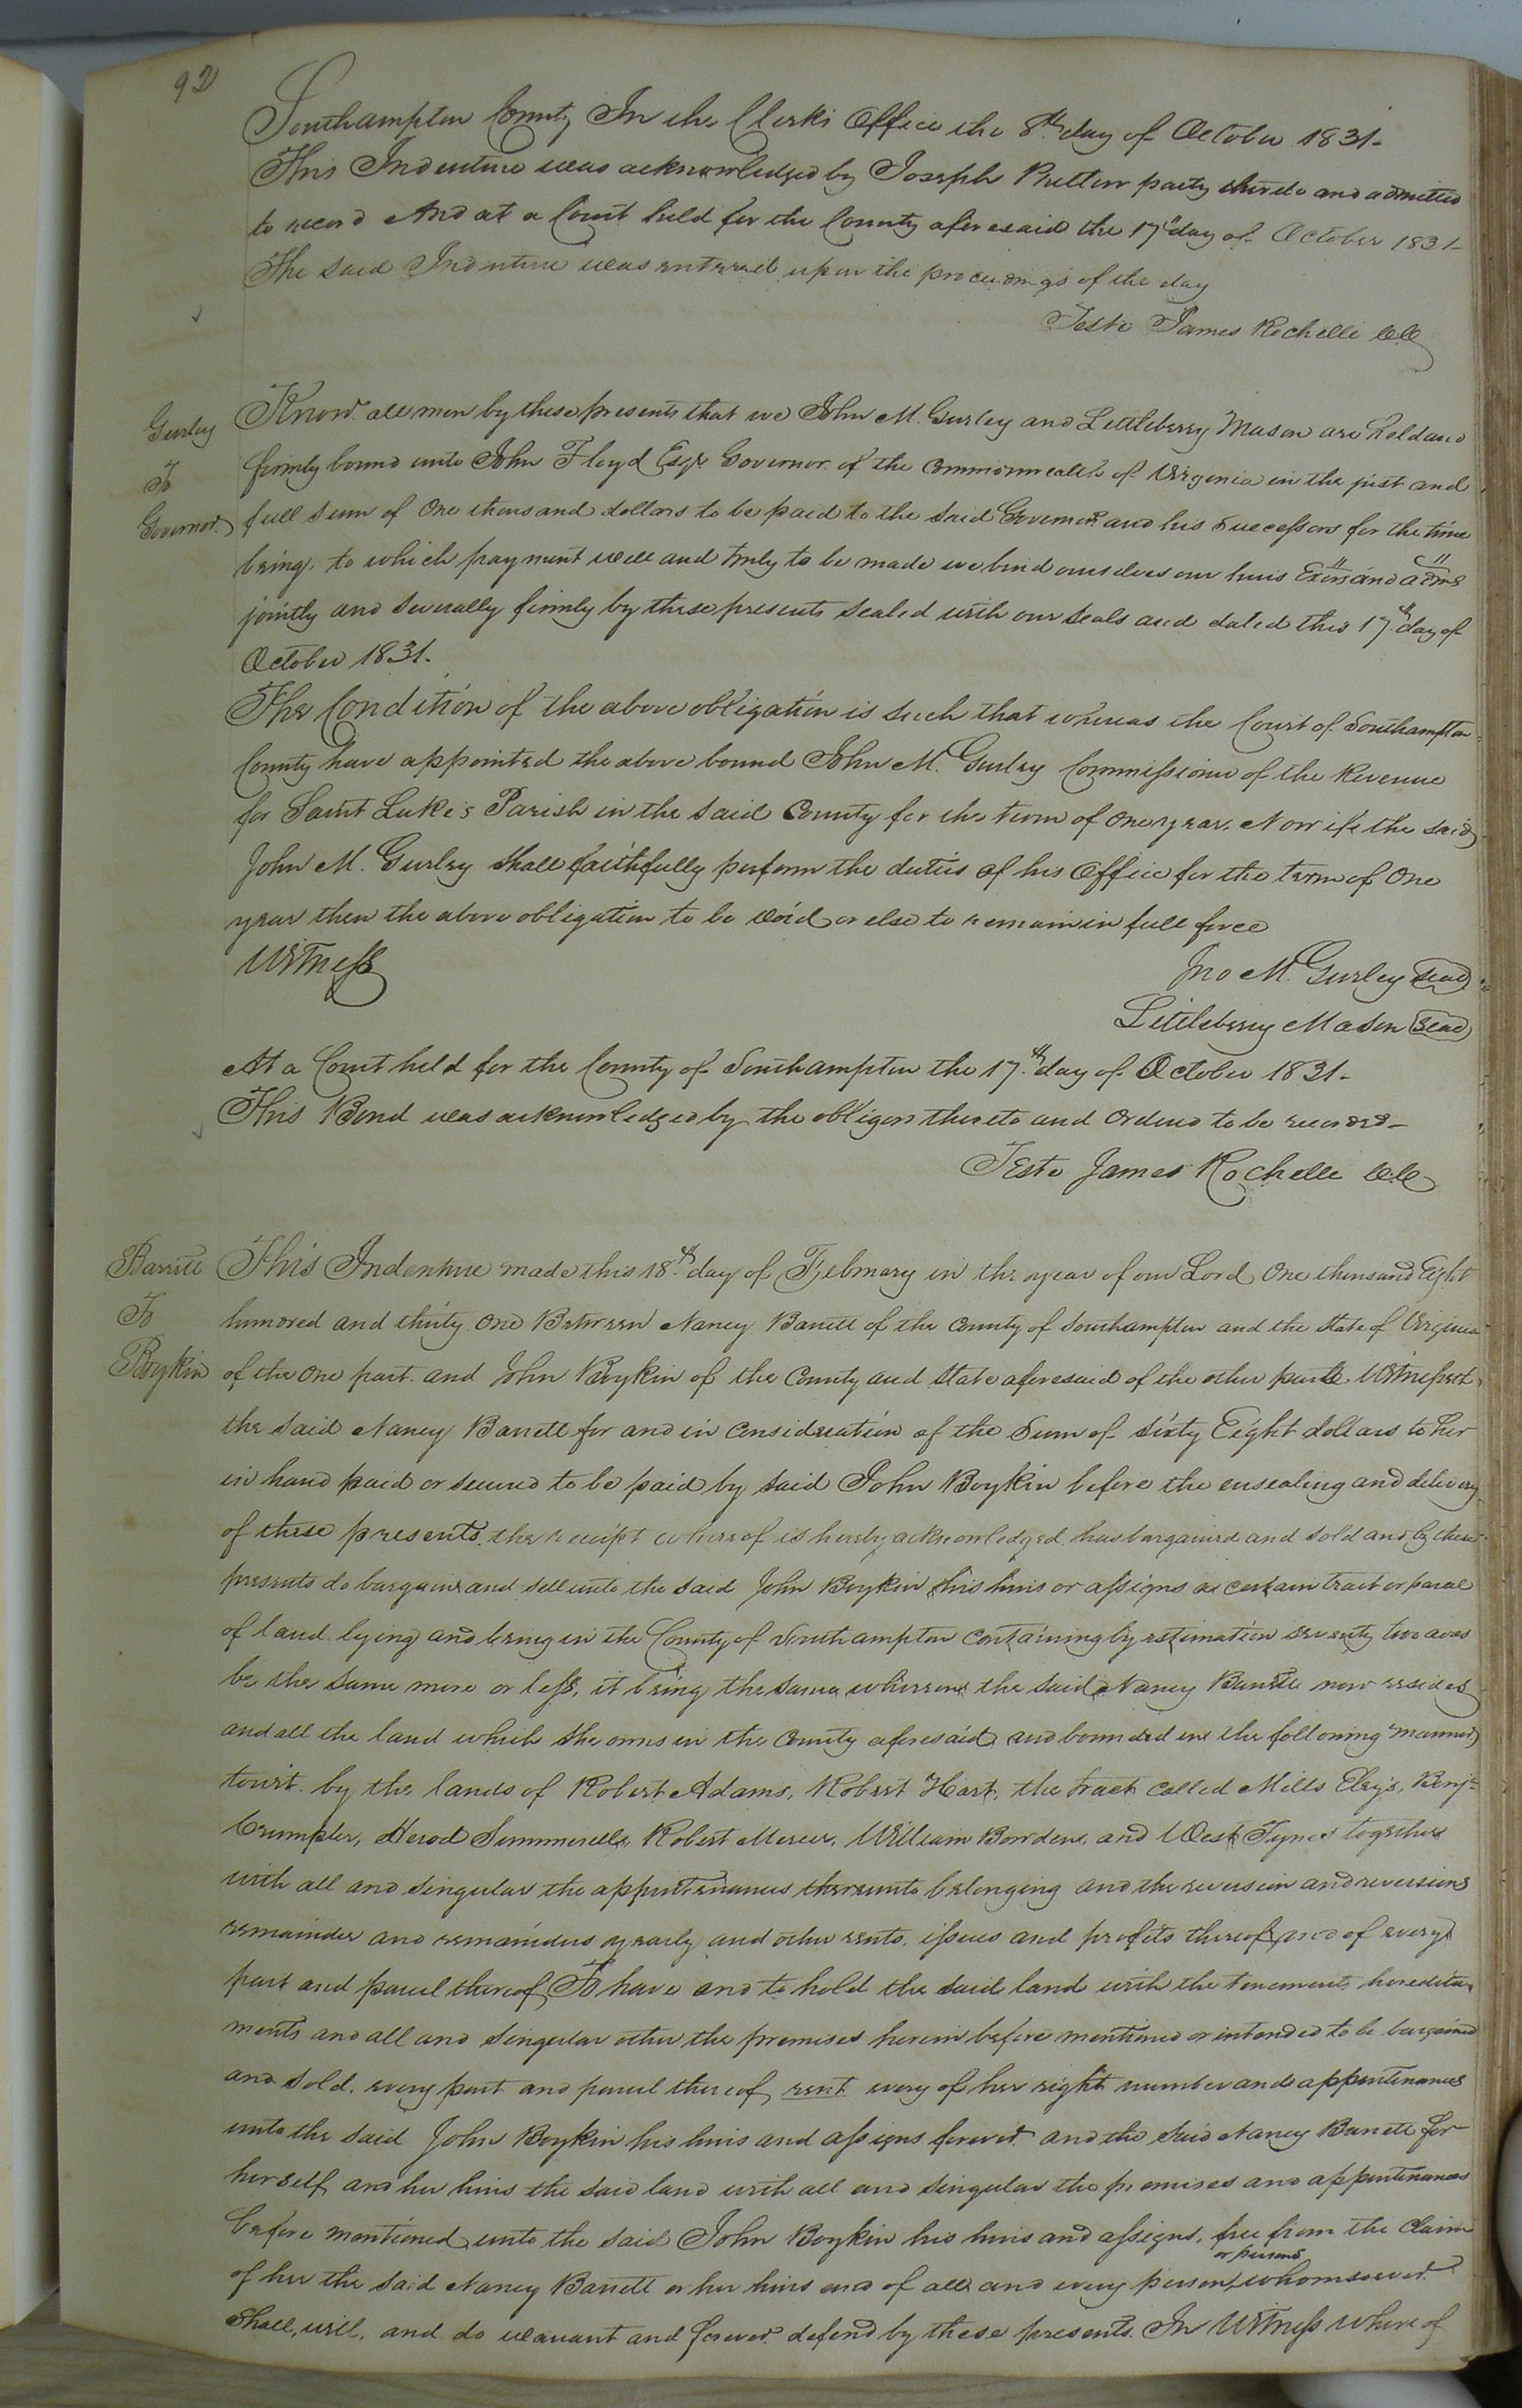 92
Southampton County In the Clerks Office the 8th day of October 1831-
This Indenture was acknowledged by Joseph Bretton party thereto and admitted
to record And at a Court held for the County aforesaid the 17th day of October 1831-
The said Indenture was entered upon the proceedings of the day
Teste James Rochelle CC
Gurley
To
Governor
Know all men by these presents that we John M. Gurley and Littleberry Mason are held and
firmly bound unto John Floyd Esqr Governor of the Commonwealth of Virginia in the just and
full sum of One thousand dollars to be paid to the said Governor and his Successors for the time
being, to which payment well and truly to be made we bind ourselves our heirs Exors and adms
jointly and severally firmly by these presents sealed with our seals and dated this 17th day of
October 1831.
The Condition of the above obligation is such that whereas the Court of Southampton
County have appointed the above bound John M. Gurley Commissioner of the Revenue
for Saint Luke's Parish in the said County for the term of one year. Now if the said
John M. Gurley shall faithfully perform the duties of his Office for the term of One
year then the above obligation to be void or else to remain in full force
Witness
Jno M. Gurley Seal
Littleberry Mason Seal
At a Court held for the County of Southampton the 17th day of October 1831-
This Bond was acknowledged by the obligors thereto and Ordered to be record-
Teste James Rochelle CC
Barrett
To
Boykin
This Indenture made this 18th day of February in the year of our Lord One thousand Eight
hundred and thirty one Between Nancy Barrett of the County of Southampton and the State of Virginia
of the one part. and John Boykin of the County and State aforesaid of the other parte Witnesseth
the said Nancy Barrett for and in consideration of the Sum of Sixty Eight dollars to her
in hand paid or secured to be paid by said John Boykin before the ensealing and delivery
of these presents, the receipt whereof is hereby acknowledged, has bargained and sold and by these
presents do bargain and sell unto the said John Boykin his heirs or assigns a certain tract or parcel
of land lying and being in the County of Southampton containing by estimation seventy two acres
be the same more or less, it being the same whereon the said Nancy Barrett now resides
and all the land which she owns in the County aforesaid and bounded in the following manner
towit. by the lands of Robert Adams, Robert Hart, the tract called Mills Eley's, Benjn
Crumpler, Herod Summerell, Robert Mercer, William Bowden, and West Tynes together
with all and singular the appurtenances thereunto belonging and the reversion and reversions
remainder and remainders yearly and other rents, issues and profits thereof and of every
part and parcel thereof To have and to hold the said land with the tenements, heredita-
ments and all and singular other the premises herein before mentioned or intended to be bargained
and sold, every part and parcel thereof rent every of her right number and appurtenances
unto the said John Boykin his heirs and assigns forever and the said Nancy Barrett for
herself and her heirs the said land with all and singular the premises and appurtenances
before mentioned unto the said John Boykin his heirs and assigns, free from the claim
of her the said Nancy Barrett or her heirs and of all and every person or persons whomsoever
shall, will, and do warrant and forever defend by these presents. In Witness whereof